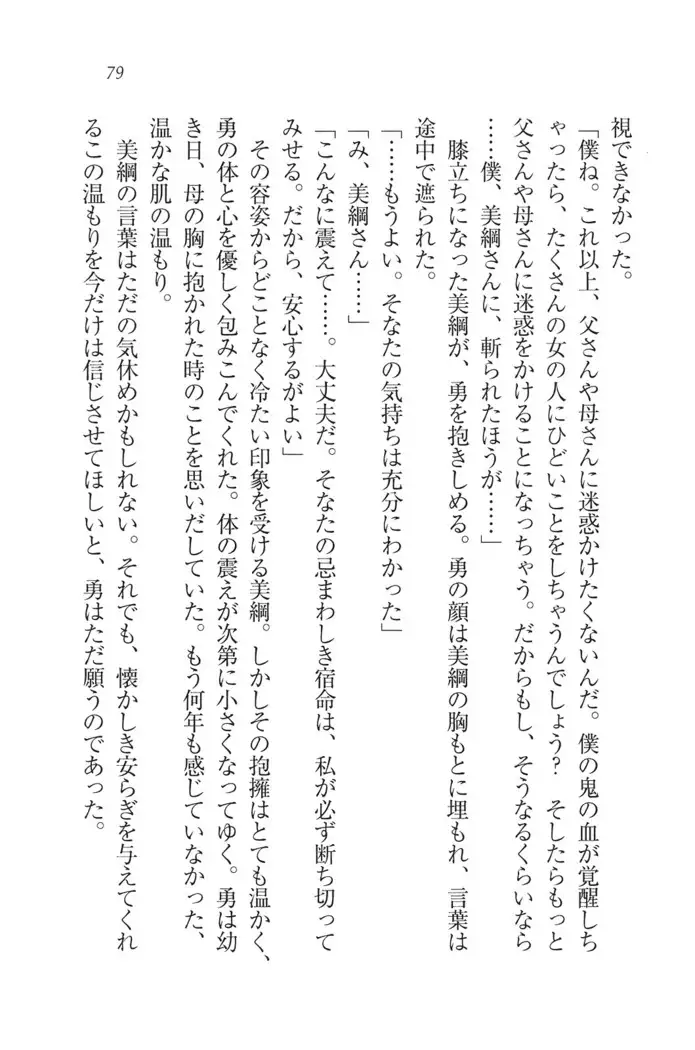 79
視できなかった。
「僕ね。これ以上、父さんや母さんに迷惑かけたくないんだ。僕の鬼の血が覚醒しち
ゃったら、たくさんの女の人にひどいことをしちゃうんでしょう？　そしたらもっと
父さんや母さんに迷惑をかけることになっちゃう。だからもし、そうなるくらいなら
……僕、美綱さんに、斬られたほうが……」
膝立ちになった美綱が、勇を抱きしめる。勇の顔は美綱の胸もとに埋もれ、言葉は
途中で遮られた。
「……もうよい。そなたの気持ちは充分にわかった」
「み、美綱さん……」
「こんなに震えて……。大丈夫だ。そなたの忌まわしき宿命は、私が必ず断ち切って
みせる。だから、安心するがよい」
その容姿からどことなく冷たい印象を受ける美綱。しかしその抱擁はとても温かく、
勇の体と心を優しく包みこんでくれた。体の震えが次第に小さくなってゆく。勇は幼
き日、母の胸に抱かれた時のことを思いだしていた。もう何年も感じていなかった、
温かな肌の温もり。
美綱の言葉はただの気休めかもしれない。それでも、懐かしき安らぎを与えてくれ
るこの温もりを今だけは信じさせてほしいと、勇はただ願うのであった。